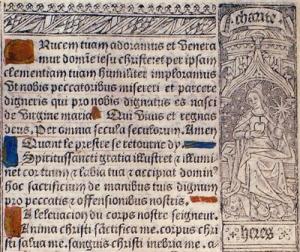 Crucem tuam adoramus et venera
mur domine iesu christe et per ipsam
clementiam tuam humiliter imploramus
Ut nobis peccatoribus misereri et parcere
digneris qui pro nobis dignatus es nasci
de virgine maria Qui vivis et regnas
deus, Per omnia secula seculorum, Amen
Quant le prestre se retourne dy
Spiritussancti gratia illustret et illumi
net cor tuum et labia tua et accipiat domin
hoc sacrificium de manibus tuis dignum
pro peccatis et offensionibus nostris
A lelevacion du corps nostre seigneur.
Anima christi sanctifica me, corpus chri
sti salva me, sanguis christi inebria me
charite
heres